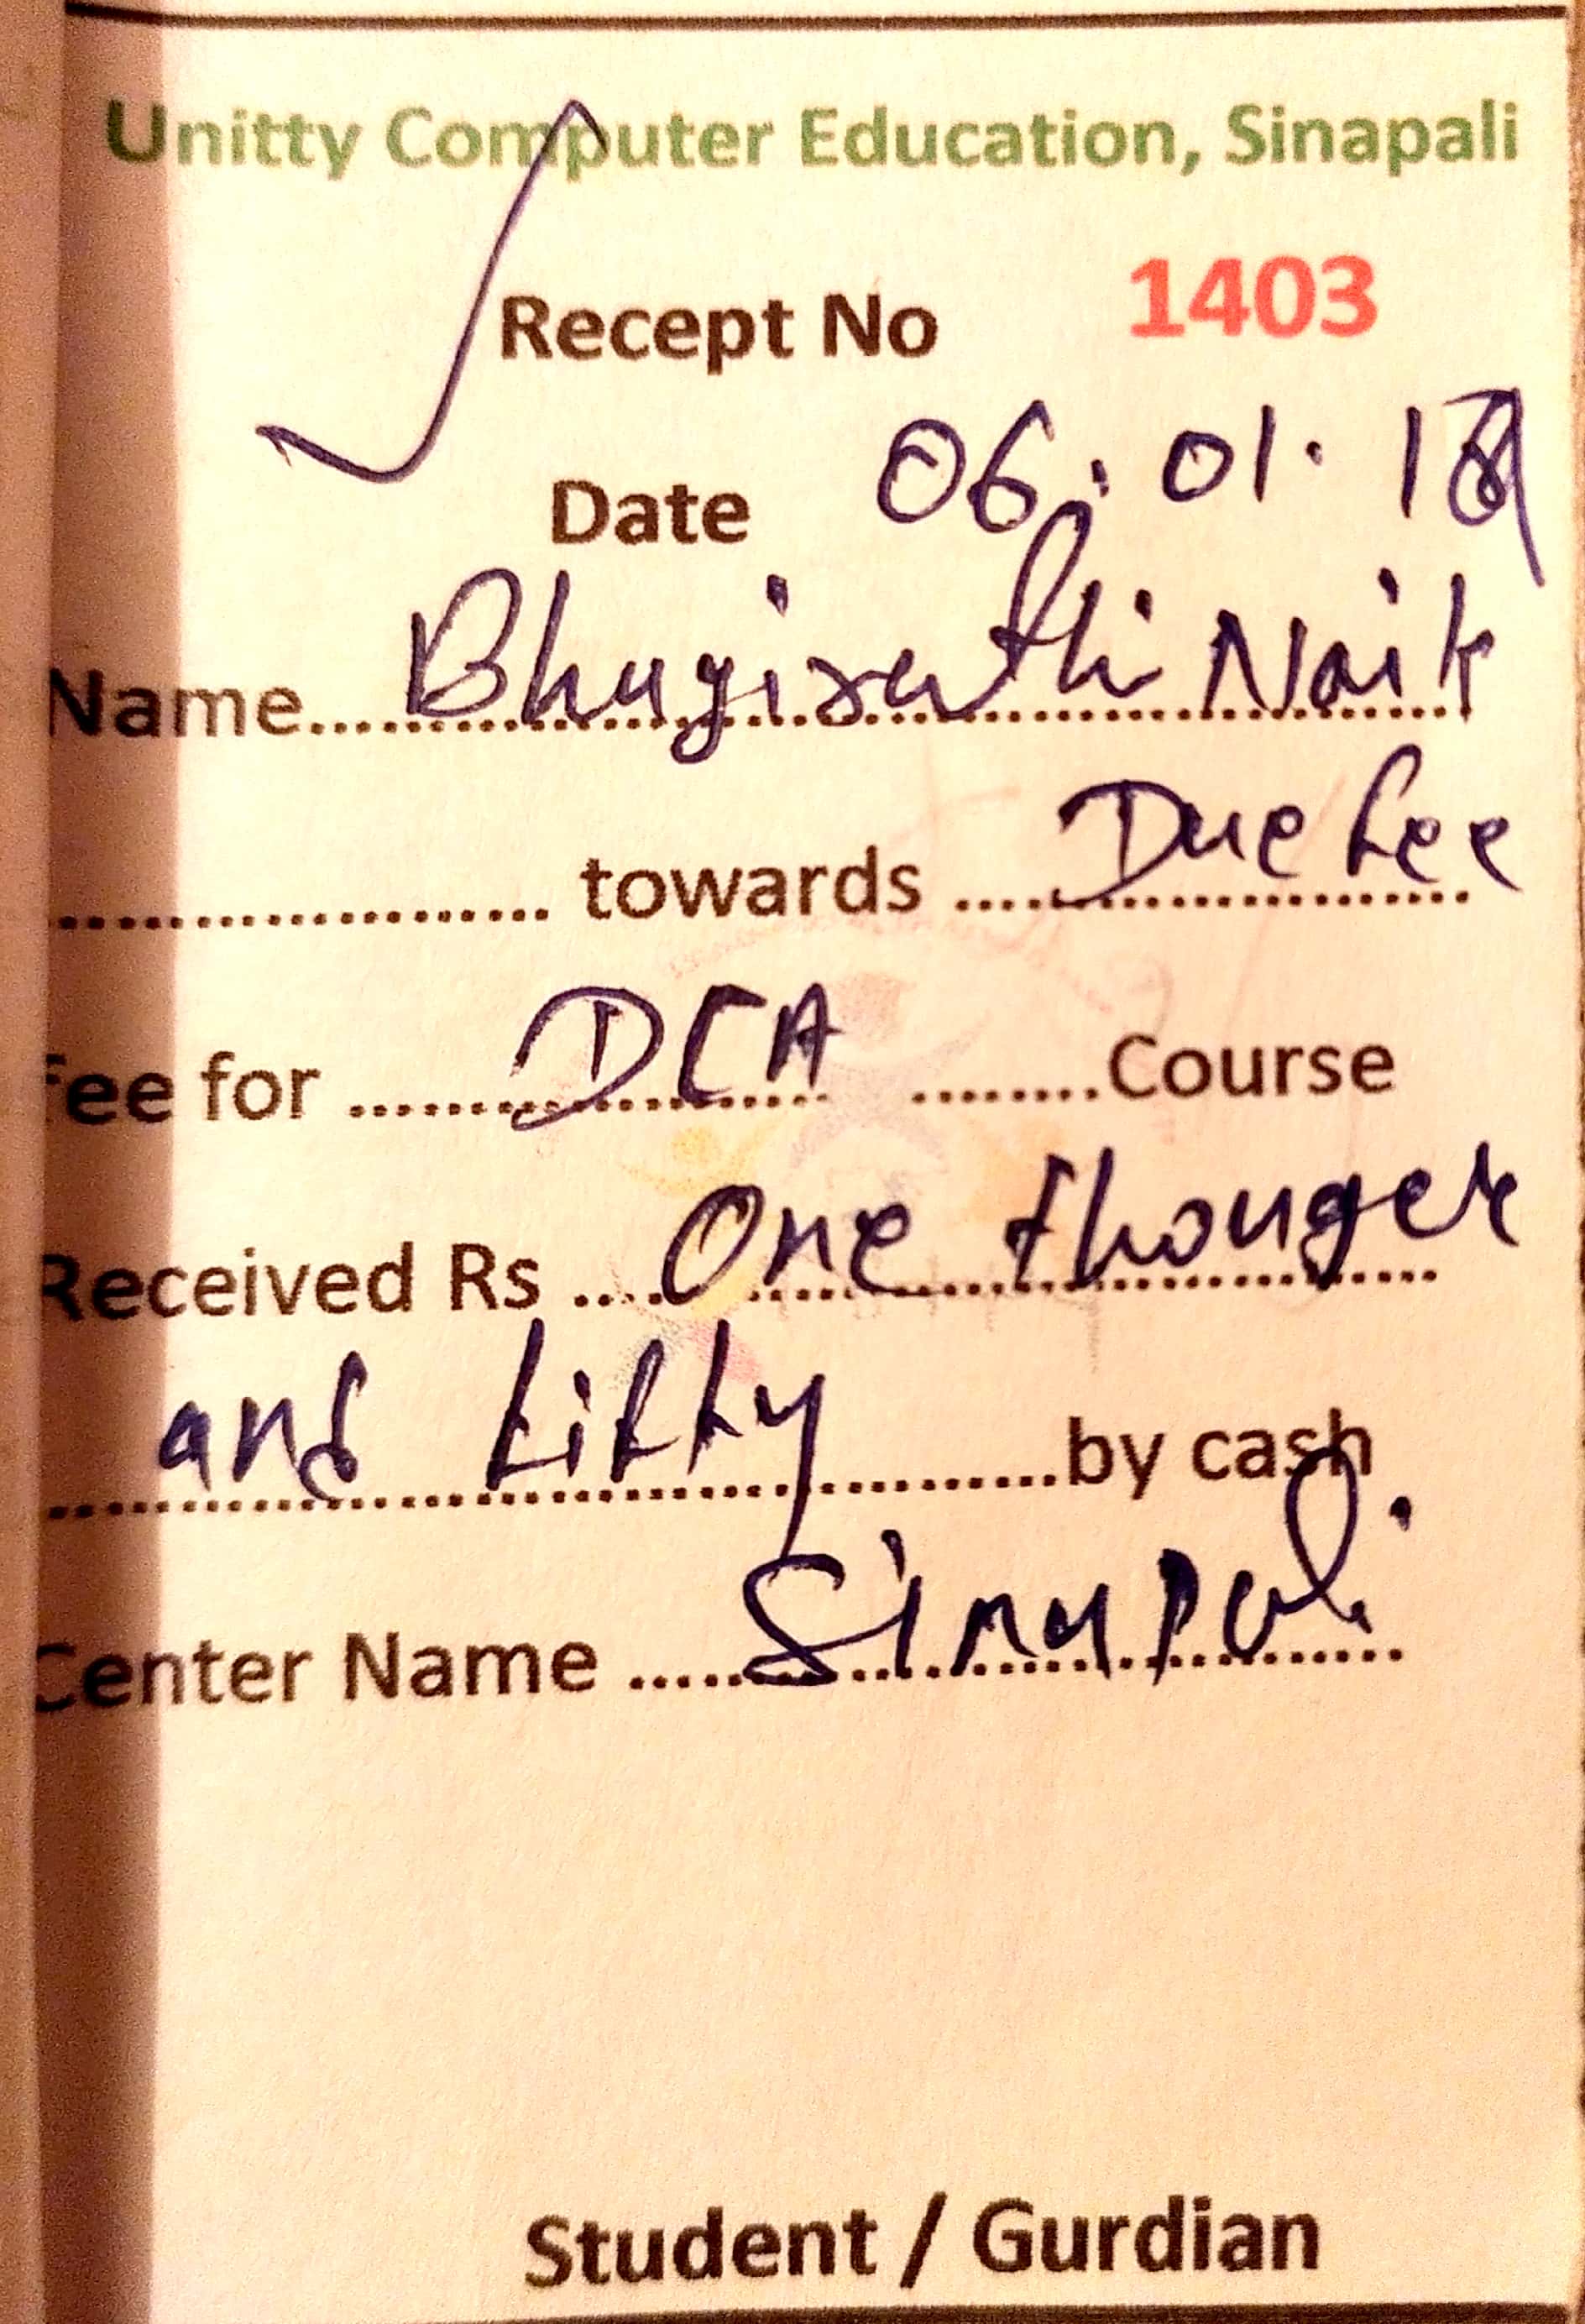 Unitty Computer Education, Sinapali
Recept No 1403
Date 06.01.19
Name.....Bhagirathi Naik
.................... towards ....Due fee
Fee for ....DCA ........Course
Received Rs ....One thousen
and fifty..........by cash
Center Name .....Sinapali
Student / Gurdian